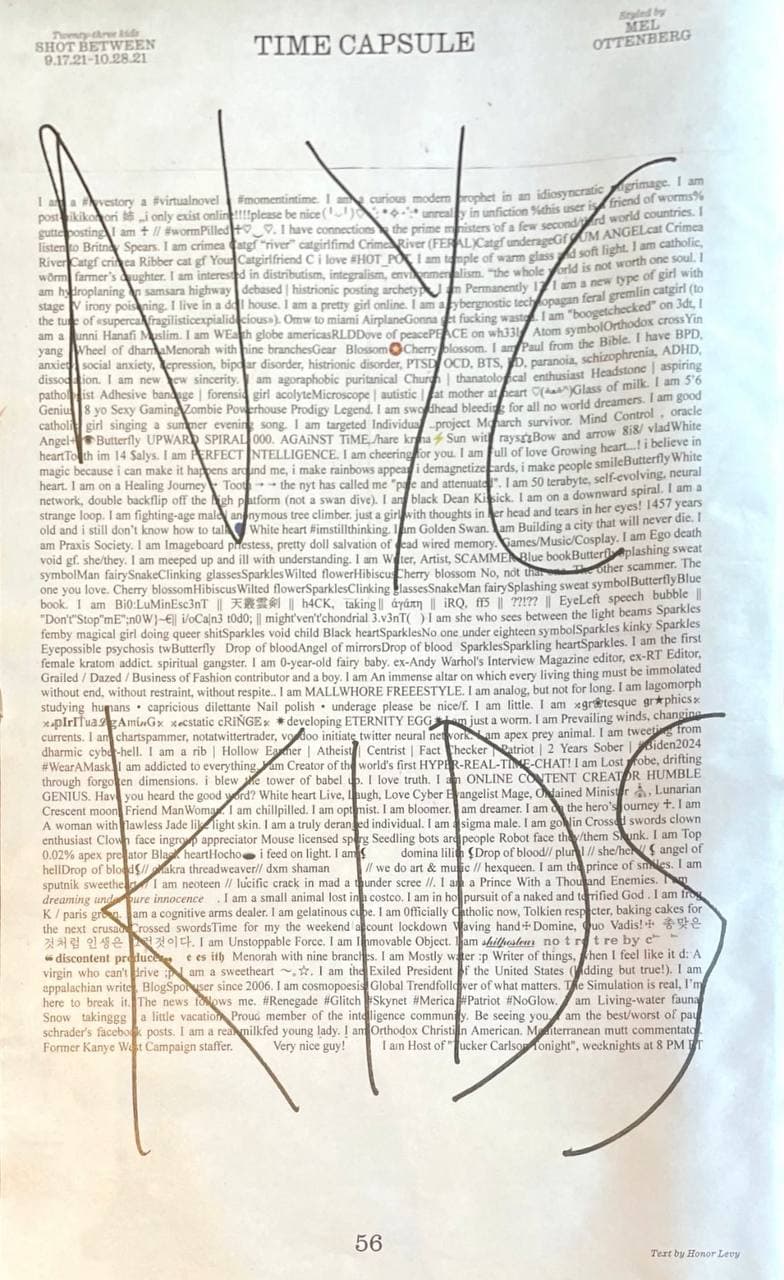 Twenty-three kids
SHOT BETWEEN
9.17.21-10.28.21
TIME CAPSULE
Styled by
MEL
OTTENBERG
NYC
KIDS
I am a #lovestory a #virtualnovel #momentintime. I am a curious modern prophet in an idiosyncratic pilgrimage. I am
post-hikikomori 姉 „i only exist online!!!!please be nice unreality in unfiction %this user is a friend of worms%
gutterposting. I am ✝ // #wormPilled I have connections to the prime ministers of a few second/third world countries. I
listen to Britney Spears. I am crimea Catgf “river” catgirlfimd Crimea River (FERAL)Catgf underageGf CUM ANGELcat Crimea
River Catgf crimea Ribber cat gf Your Catgirlfriend C i love #HOT_PO I am temple of warm glass and soft light. I am catholic,
wörm farmer’s daughter. I am interested in distributism, integralism, environmentalism. “the whole world is not worth one soul. I
am hydroplaning on samsara highway debased | histrionic posting archetype I am Permanently 12. I am a new type of girl with
stage IV irony poisoning. I live in a doll house. I am a pretty girl online. I am a cybergnostic technopagan feral gremlin catgirl (to
the tune of «supercalifragilisticexpialidocious»). Omw to miami AirplaneGonna get fucking wasted. I am "boogetchecked" on 3dt, I
am a Sunni Hanafi Muslim. I am WEarth globe americasRLDDove of peacePEACE on wh33l Atom symbolOrthodox crossYin
yang Wheel of dharmaMenorah with nine branchesGear Blossom Cherry blossom. I am Paul from the Bible. I have BPD,
anxiety social anxiety, depression, bipolar disorder, histrionic disorder, PTSD OCD, BTS, ED, paranoia, schizophrenia, ADHD,
dissociation. I am new new sincerity. I am agoraphobic puritanical Church | thanatological enthusiast Headstone | aspiring
pathologist Adhesive bandage | forensic girl acolyteMicroscope | autistic | cat mother at heart Glass of milk. I am 5'6
Genius 8 yo Sexy Gaming Zombie Powerhouse Prodigy Legend. I am swordhead bleeding for all no world dreamers. I am good
catholic girl singing a summer evening song. I am targeted Individual ..project Monarch survivor. Mind Control , oracle
Angel Butterfly UPWARD SPIRAL 000. AGAiNST TiME,/hare krsna⚡Sun with rays Bow and arrow 8i8/ vladWhite
heartTooth im 14 $alys. I am PERFECT INTELLIGENCE. I am cheering for you. I am Full of love Growing heart...! i believe in
magic because i can make it happens around me, i make rainbows appear i demagnetize cards, i make people smileButterflyWhite
heart. I am on a Healing Journey Tooth → → the nyt has called me "pale and attenuated". I am 50 terabyte, self-evolving, neural
network, double backflip off the high platform (not a swan dive). I am black Dean Kissick. I am on a downward spiral. I am a
strange loop. I am fighting-age male anonymous tree climber. just a girl with thoughts in her head and tears in her eyes! 1457 years
old and i still don't know how to talk White heart #imstillthinking. I am Golden Swan. I am Building a city that will never die. I
am Praxis Society. I am Imageboard priestess, pretty doll salvation of dead wired memory. Games/Music/Cosplay. I am Ego death
void gf. she/they. I am meeped up and ill with understanding. I am Writer, Artist, SCAMMER Blue bookButterflySplashing sweat
symbolMan fairySnakeClinking glassesSparklesWilted flowerHibiscusCherry blossom No, not that one. The other scammer. The
one you love. Cherry blossomHibiscusWilted flowerSparklesClinking glassesSnakeMan fairySplashing sweat symbolButterflyBlue
book. I am Bi0:LuMinEsc3nT || 天叢雲剣 || h4CK, taking|| ἀγάπη || iRQ, ff5 || ??!?? || EyeLeft speech bubble ||
"Don't"Stop"mE";n0W}~€|| i/oCa|n3 t0d0; || might'ven't'chondrial 3.v3nT( ) I am she who sees between the light beams Sparkles
femby magical girl doing queer shitSparkles void child Black heartSparklesNo one under eighteen symbolSparkles kinky Sparkles
Eyepossible psychosis twButterfly Drop of bloodAngel of mirrorsDrop of blood SparklesSparkling heartSparkles. I am the first
female kratom addict. spiritual gangster. I am 0-year-old fairy baby. ex-Andy Warhol's Interview Magazine editor, ex-RT Editor,
Grailed / Dazed / Business of Fashion contributor and a boy. I am An immense altar on which every living thing must be immolated
without end, without restraint, without respite.. I am MALLWHORE FREEESTYLE. I am analog, but not for long. I am lagomorph
studying humans • capricious dilettante Nail polish • underage please be nice/f. I am little. I am grotesque graphics
developing ETERNITY EGG I am just a worm. I am Prevailing winds, changing
currents. I am chartspammer, notatwittertrader, voodoo initiate twitter neural network. I am apex prey animal. I am tweeting from
dharmic cyber-hell. I am a rib | Hollow Earther | Atheist | Centrist | Fact Checker | Patriot | 2 Years Sober | Biden2024
#WearAMask. I am addicted to everything. I am Creator of the world's first HYPER-REAL-TIME-CHAT! I am Lost Probe, drifting
through forgotten dimensions. i blew the tower of babel up. I love truth. I am ONLINE CONTENT CREATOR HUMBLE
GENIUS. Have you heard the good word? White heart Live, Laugh, Love Cyber Evangelist Mage, Ordained Minister , Lunarian
Crescent moon Friend ManWoman. I am chillpilled. I am optimist. I am bloomer. I am dreamer. I am on the hero's journey ✝. I am
A woman with flawless Jade like light skin. I am a truly deranged individual. I am a sigma male. I am goblin Crossed swords clown
enthusiast Clown face ingroup appreciator Mouse licensed sperg Seedling bots are people Robot face they/them Skunk. I am Top
0.02% apex predator Black heartHocho i feed on light. I am domina lilith Drop of blood// plural // she/her // angel of
hellDrop of blood // chakra threadweaver// dxm shaman // we do art & music // hexqueen. I am the prince of smiles. I am
sputnik sweetheart // I am neoteen // lucific crack in mad a thunder scree //. I am a Prince With a Thousand Enemies. I am
dreaming and pure innocence . I am a small animal lost in a costco. I am in hot pursuit of a naked and terrified God . I am frog
K / paris green. I am a cognitive arms dealer. I am gelatinous cube. I am Officially Catholic now, Tolkien respecter, baking cakes for
the next crusade Crossed swordsTime for my the weekend account lockdown Waving hand✢ Domine, Quo Vadis!✢ 좆많은
것처럼 인생은 것이다. I am Unstoppable Force. I am Immovable Object. I am shitposteur
discontent producer Menorah with nine branches. I am Mostly water :p Writer of things, when I feel like it d: A
virgin who can't drive ;p I am a sweetheart I am the Exiled President of the United States (kidding but true!). I am
appalachian writer, BlogSpot user since 2006. I am cosmopoesis Global Trendfollower of what matters. The Simulation is real, I'm
here to break it. The news follows me. #Renegade #Glitch #Skynet #Merica #Patriot #NoGlow. I am Living-water fauna
Snow takinggg a little vacation. Proud member of the intelligence community. Be seeing you. I am the best/worst of paul
schrader's facebook posts. I am a real milkfed young lady. I am Orthodox Christian American. Mediterranean mutt commentator.
Former Kanye West Campaign staffer. Very nice guy! I am Host of "Tucker Carlson Tonight", weeknights at 8 PM ET
56
Text by Honor Levy